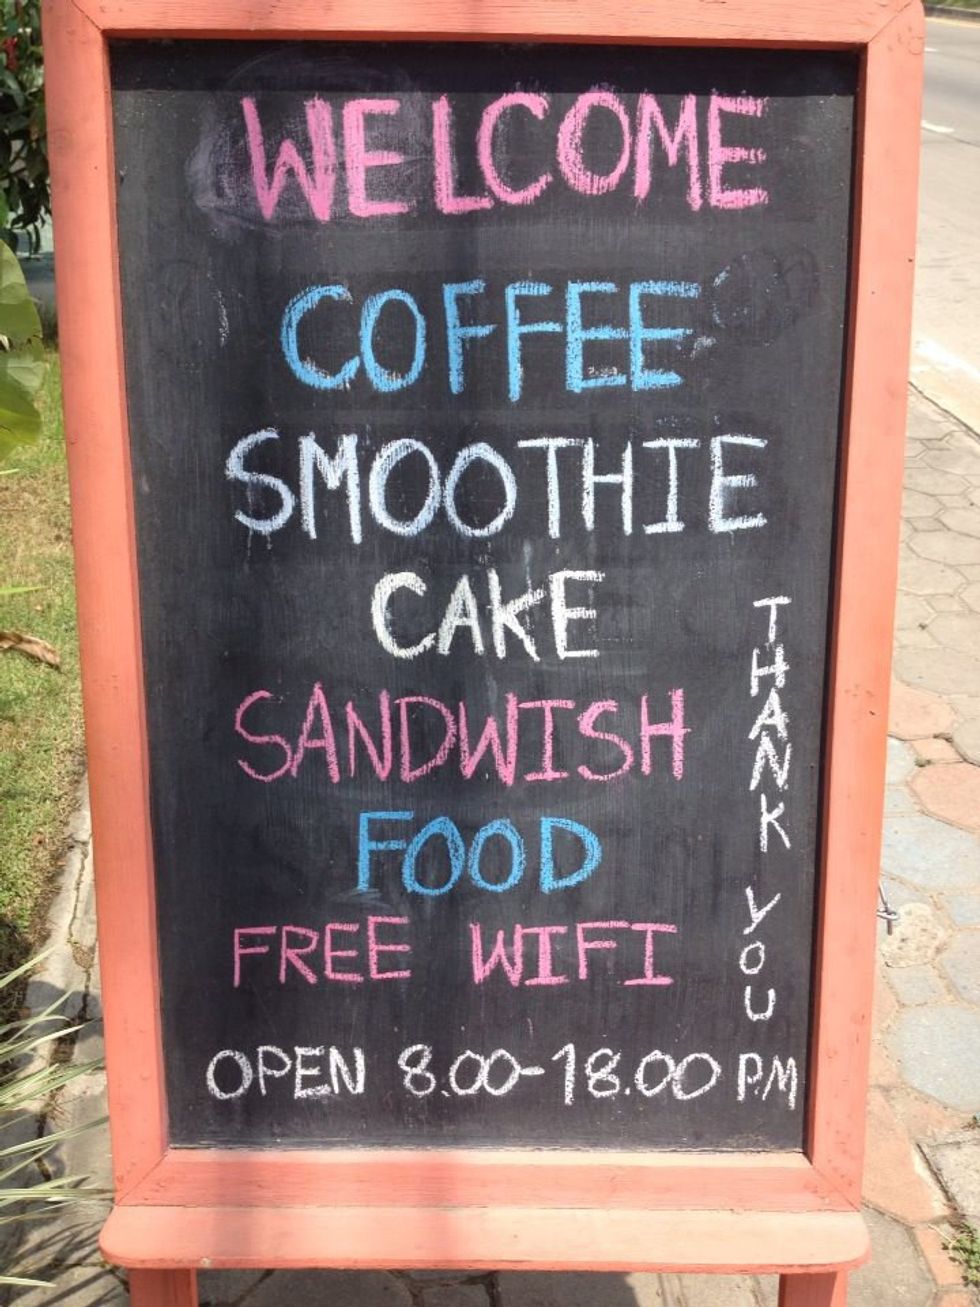 WELCOME
COFFEE
SMOOTHIE
CAKE
SANDWISH
FOOD
FREE WIFI
OPEN 8.00-18.00 PM
THANK YOU